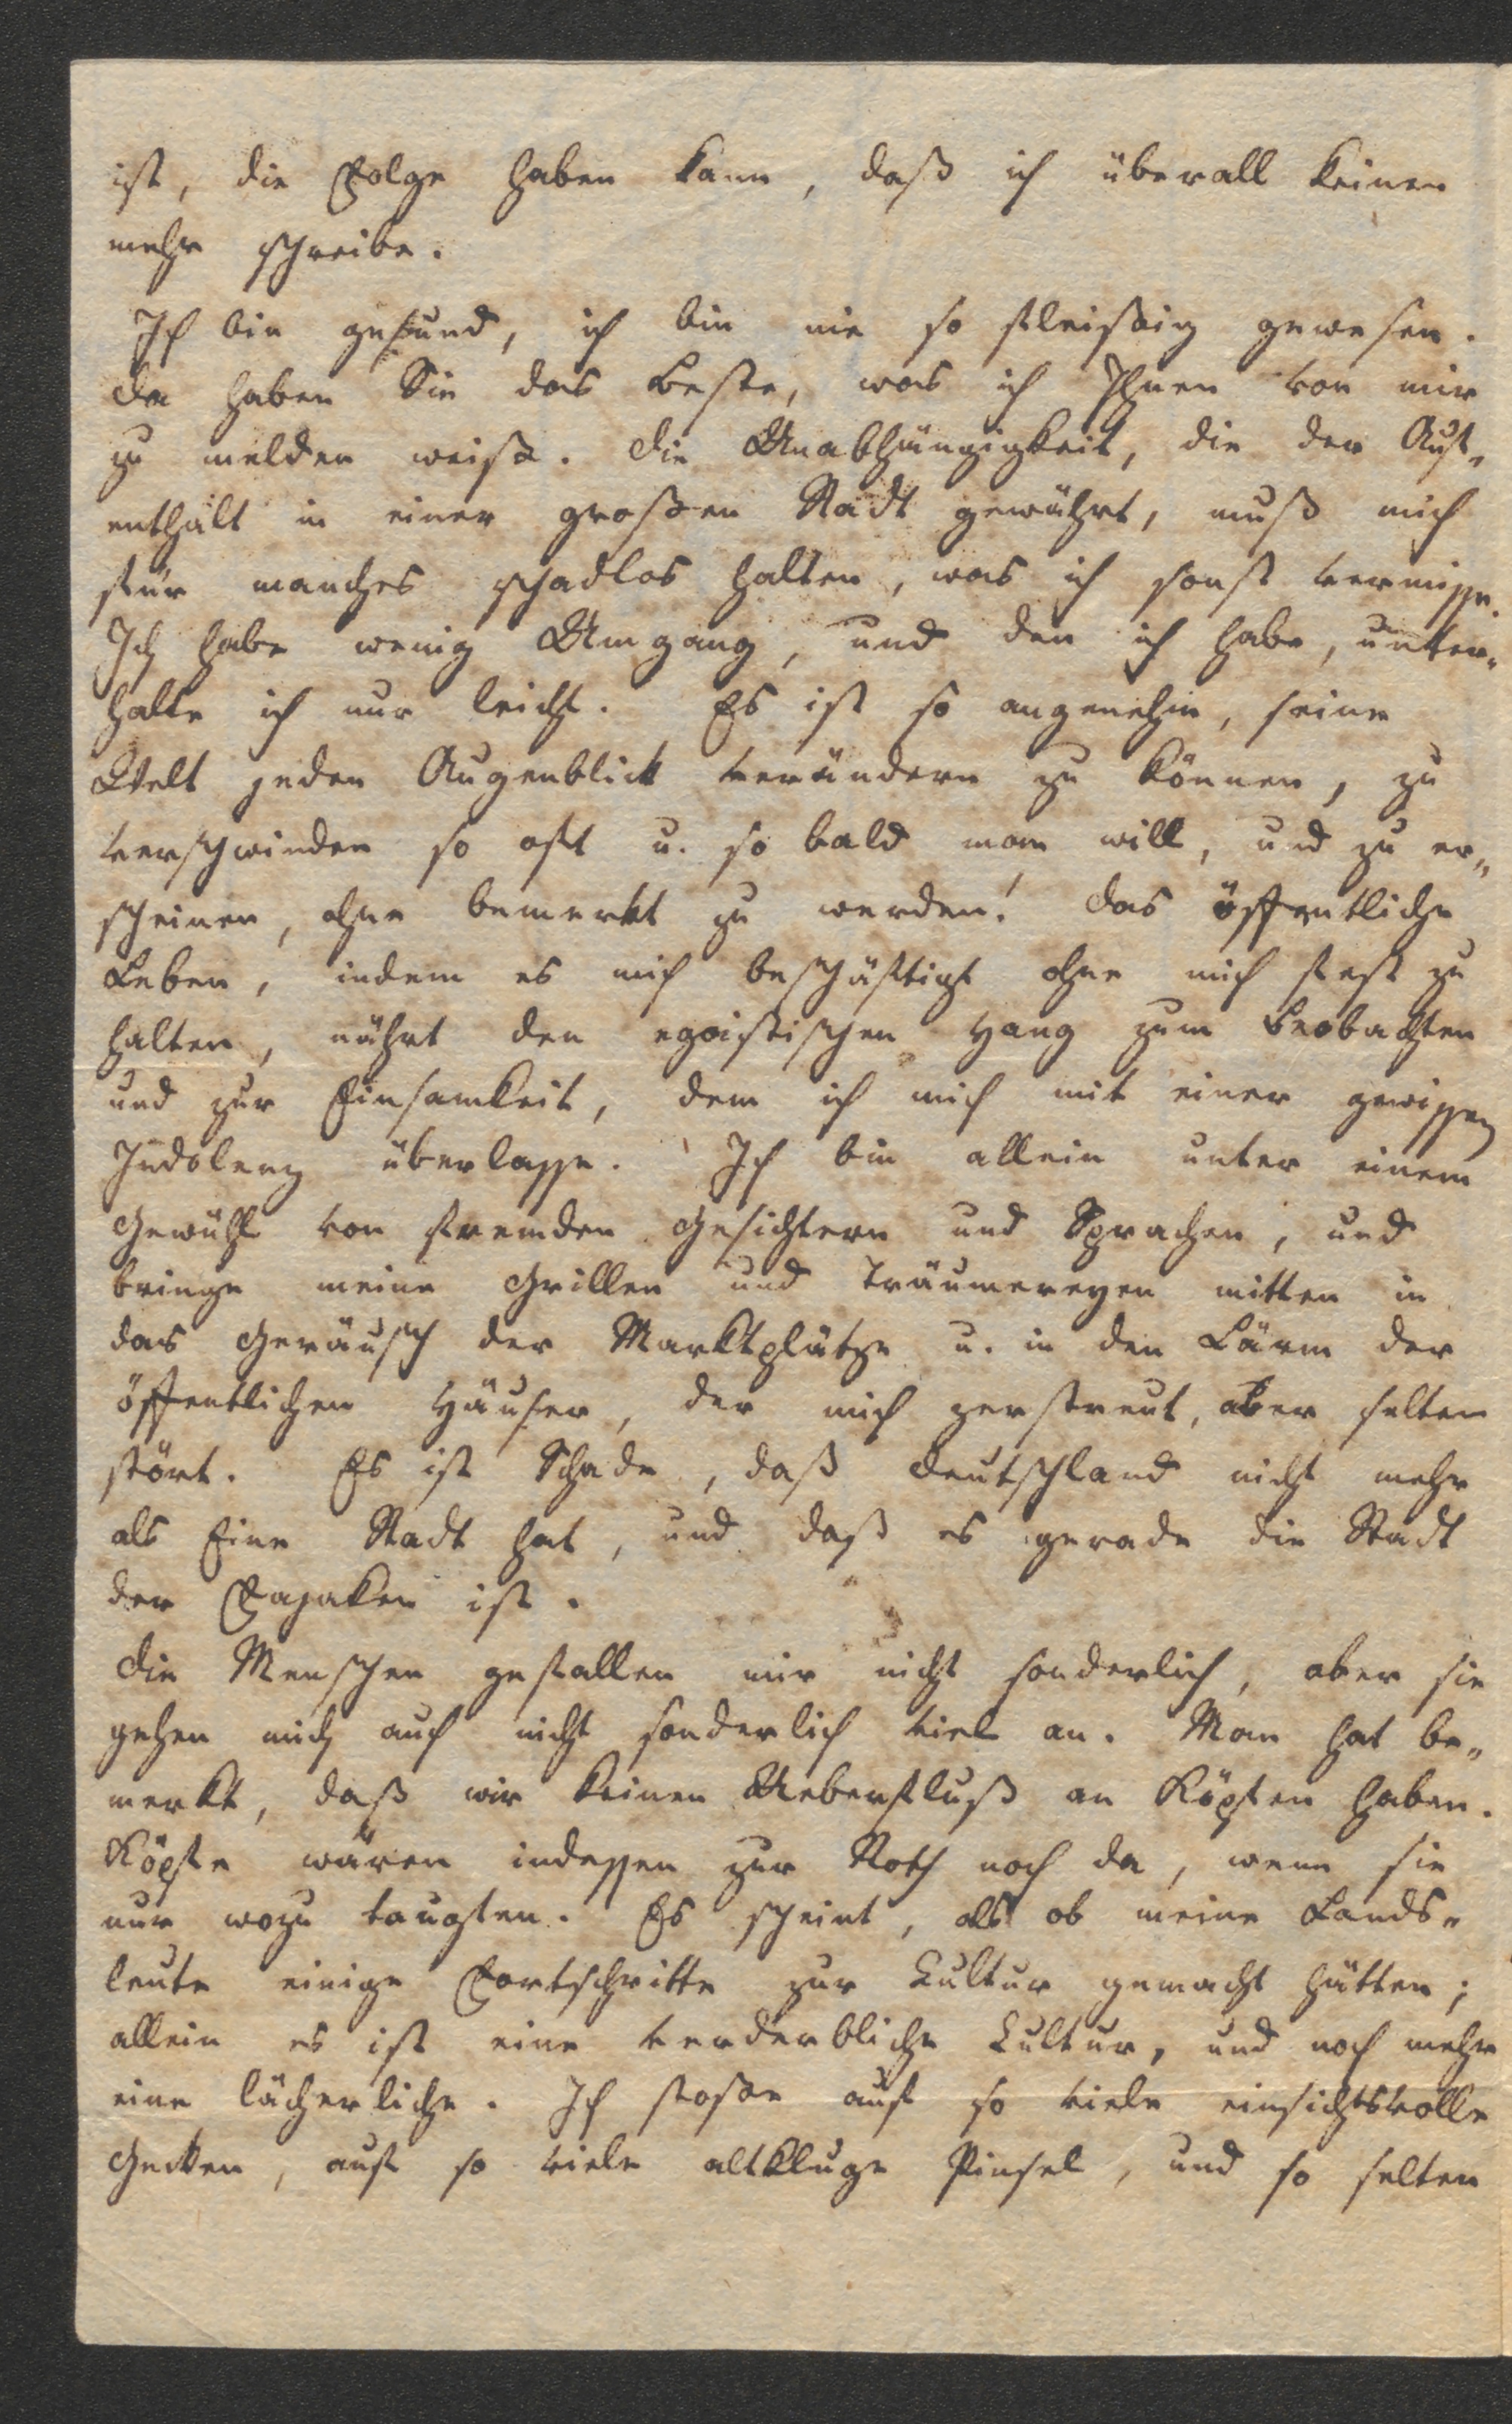 ist, die Folge haben kann, daß ich überall keinen
mehr schreibe.
Ich bin gesund, ich bin nie so fleißig gewesen.
da haben Sie das Beste, was ich Ihnen von mir
zu melden weiß. die Unabhängigkeit, die der Auf„
enthalt in einer großen Stadt gewährt, muß mich
für manches schadlos halten, was ich sonst vermisse.
Ich habe wenig Umgang, und den ich habe, unter„
halte ich nur leicht. Es ist so angenehm, seine
Welt jeden Augenblick verändern zu können, zu
verschwinden so oft u. so bald man will, und zu er„
scheinen, ohne bemerkt zu werden! das öffentliche
Leben, indem es mich beschäftigt ohne mich fest zu
halten, nährt den egoistischen Hang zum Beobachten
und zur Einsamkeit, dem ich mich mit einer gewissen
Indolenz überlasse. Ich bin allein unter einem
Gewühl von fremden Gesichtern und Sprachen, und
bringe meine Grillen und Träumereyen mitten in
das Geräusch der Marktplätze u. in den Lärm der
öffentlichen Häuser, der mich zerstreut, aber selten
stört. Es ist Schade, daß Deutschland nicht mehr
als Eine Stadt hat, und daß es gerade die Stadt
der Fajaken ist.
die Menschen gefallen mir nicht sonderlich, aber sie
gehen mich auch nicht sonderlich viel an. Man hat be„
merkt, daß wir keinen Ueberfluß an Köpfen haben.
Köpfe wären indessen zur Noth noch da, wenn sie
nur wozu taugten. Es scheint, als ob meine Lands„
leute einige Fortschritte zur Kultur gemacht hätten;
allein es ist eine verderbliche Kultur, und noch mehr
eine lächerliche. Ich stoße auf so viele einsichtsvolle
Gecken, auf so viele altkluge Pinsel, und so selten